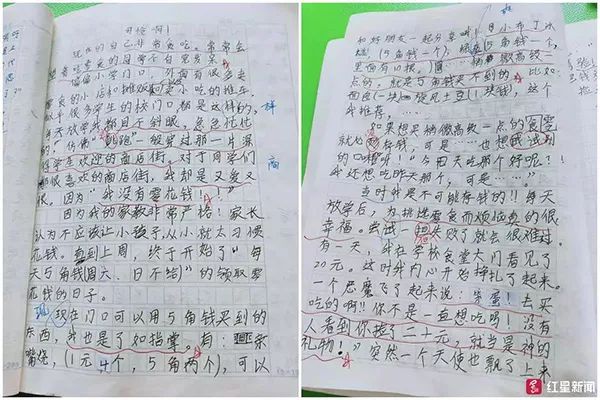 可怜啊!
现在的自己非常贪吃。常常会
想着吃零食的自己
小学门口,外面有很多卖
零食的小店和摊贩和卖小吃的推车。
似乎很多学生的校门口都是这样的,
每天放学我都目不斜眼,急急忙忙
的,仿佛“跳跑”一般穿过那一片深
受学生欢迎的商店街。对于同学们
都很喜欢的商店街,我却是又爱又
恨,因为“我没有零花钱!”
因为我的家教非常严格!家长
认为不应该让小孩子从小就太习惯
花钱。直到上周,终于开始了“每
天5角钱周六、日不给”的领取零
花钱的日子。
现在门口可以用5角钱买到的
东西,我也是了如指掌。有:
嘴烧,(1元4个,5角两个),可以
和好朋友一起分享呀!
(5角钱一个),
里面有口报,)
稍微高级一
点的,就是5角钱买不到的
比如
西区一块
旋风土豆(1块钱),这个
我推荐,……
如果想买稍微高级一点的零食
就必须存钱,可是……也想试试别
的口味呀!“今天吃那个好呢!!
我还想吃昨天那个,可是……”。
当时我是不可能存钱的!!每天
放学后,为挑选零食而烦恼真的很
幸福。尝试一但失败了就会很难过。
有一天,我在学校食堂大门看见了
20元。这时我内心开始挣扎了起来。
一个恶魔飞了起来说:笨蛋!去买
吃的啊!!你不是一直想吃吗!没有
人看到你捡了二十元,就当是神的
礼物!”突然一个天使也飘了上来
红星新闻